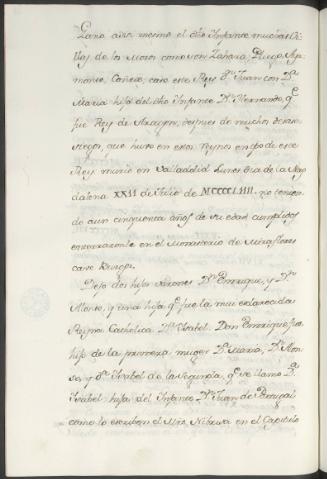 Gano assi mesmo el dho Infante muchas Vi-
llas de los Moros como son Zahara, Priego, Aya-
monte, Cañete, caso este Rey Dn. Juan con Da.
Maria hija del dho Infante Dn. Hernando, q.
fue Rey de Aragon, despues de muchos desaso-
siegos, que huvo en estos Reynos en tpo de este
Rey murio en Valladolid Lunes dia de la Mag-
dalena XXII de Julio de MCCCCLIIII. no tenien-
do aun cinquenta años de su edad cumplidos
enterraronle en el Monasterio de Miraflores
cave Burgos.
Dejo dos hijos varones Dn. Enrrique, y Dn.
Alonso, y una hija q. fue la mui esclarecida
Reyna Catholica Da. Isabel. Don Enrrique fue
hijo de la primera muger Da. Maria, Dn. Alon-
so, y Da. Isabel de la segunda, q. se llamo Da.
Isabel hija del Infante Dn. Juan de Portugal
como lo escriben el Mro. Nebrixa en el Capitulo